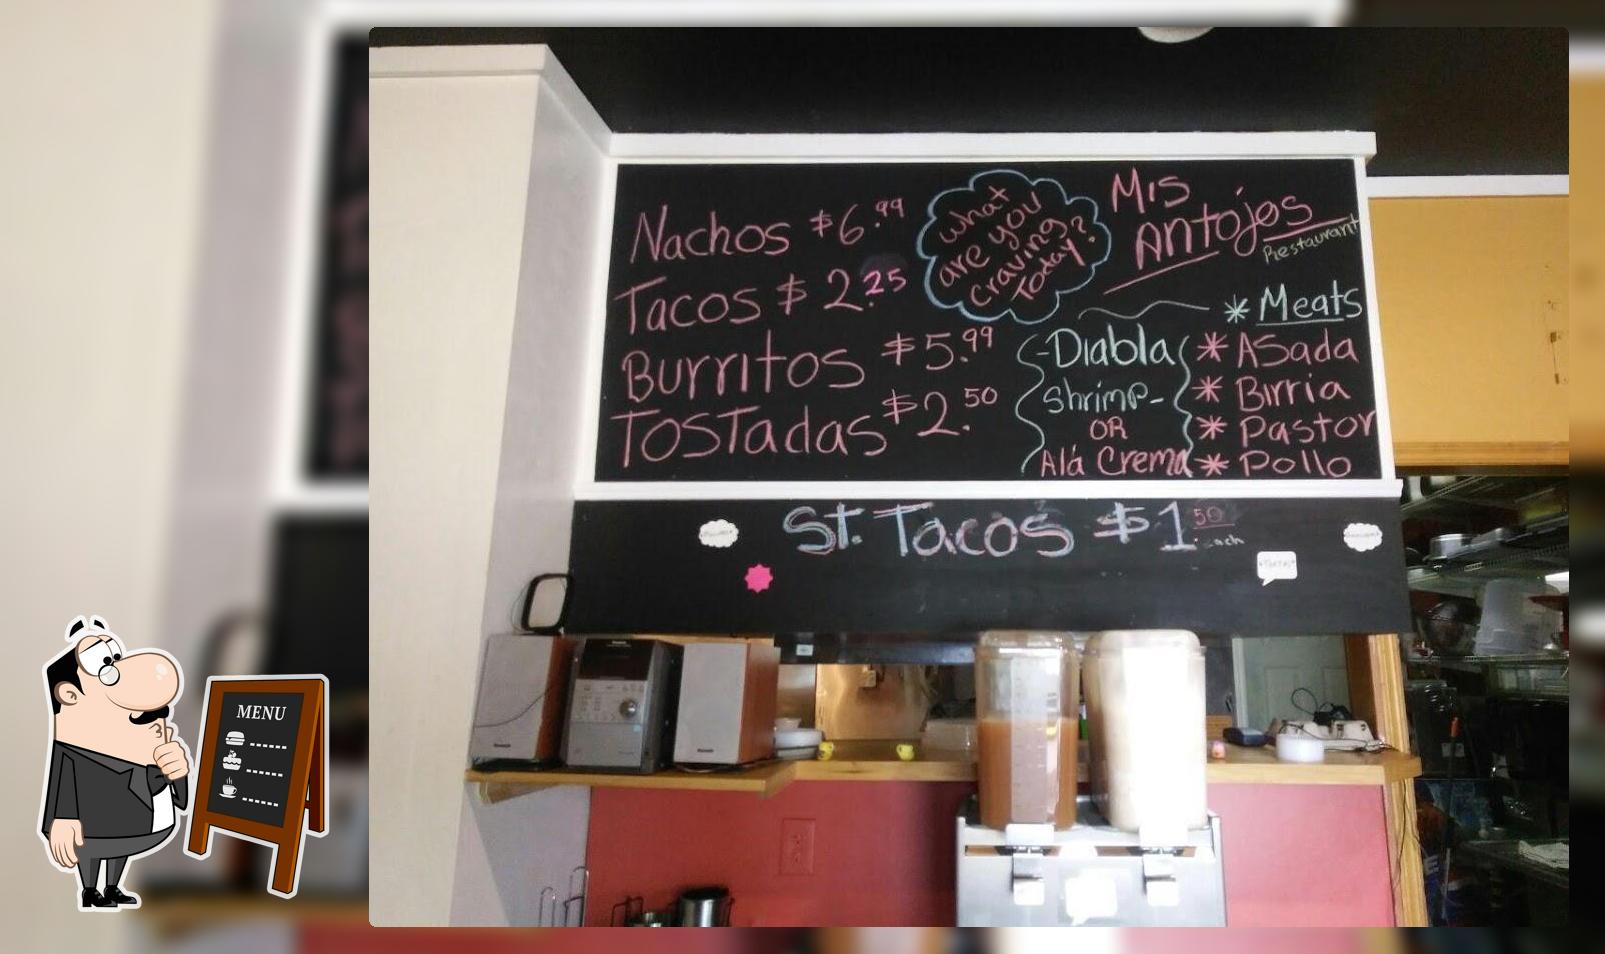 Nachos $6.99
Tacos $2.25
Burritos $5.99
Tostadas $2.50
What
are you
Craving
Today?
Mis
Antojos
Restaurant
* Meats
* Asada
* Birria
* Pastor
* Pollo
-Diabla
Shrimp-
OR
Alá Crema
St. Tacos $1.50
each
MENU